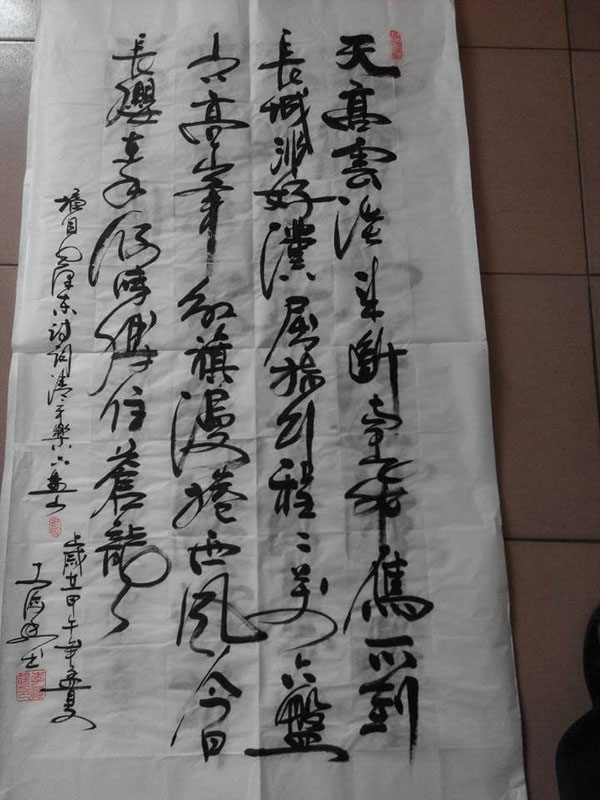 天高雲淡望斷南飛雁不到
長城非好漢屈指行程二萬六盤
山上高峯紅旗漫捲西風今日
長纓在手何時縛住蒼龍
摘自毛泽东诗词清平樂六盘山
歲在甲午年夏
书